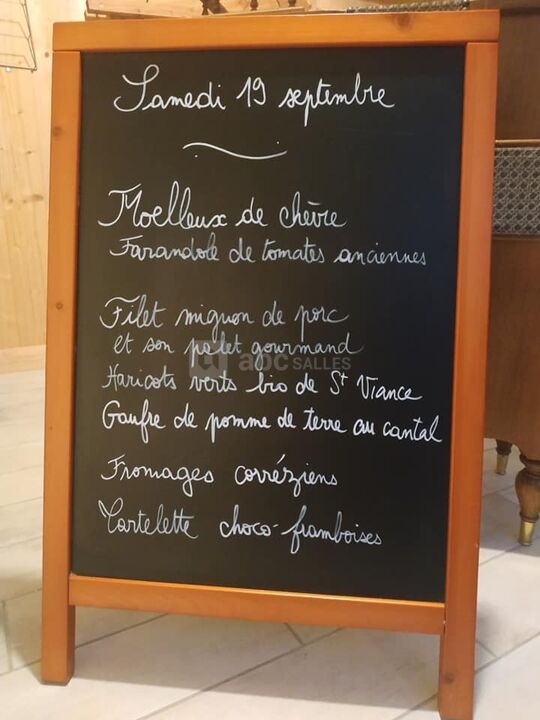 Samedi 19 septembre
Moelleux de chèvre
Farandole de tomates anciennes
Filet mignon de porc
et son palet gourmand
Haricots verts bio de St Viance
Gaufre de pomme de terre au cantal
Fromages corréziens
Tartelette choco-framboises
abc SALLES